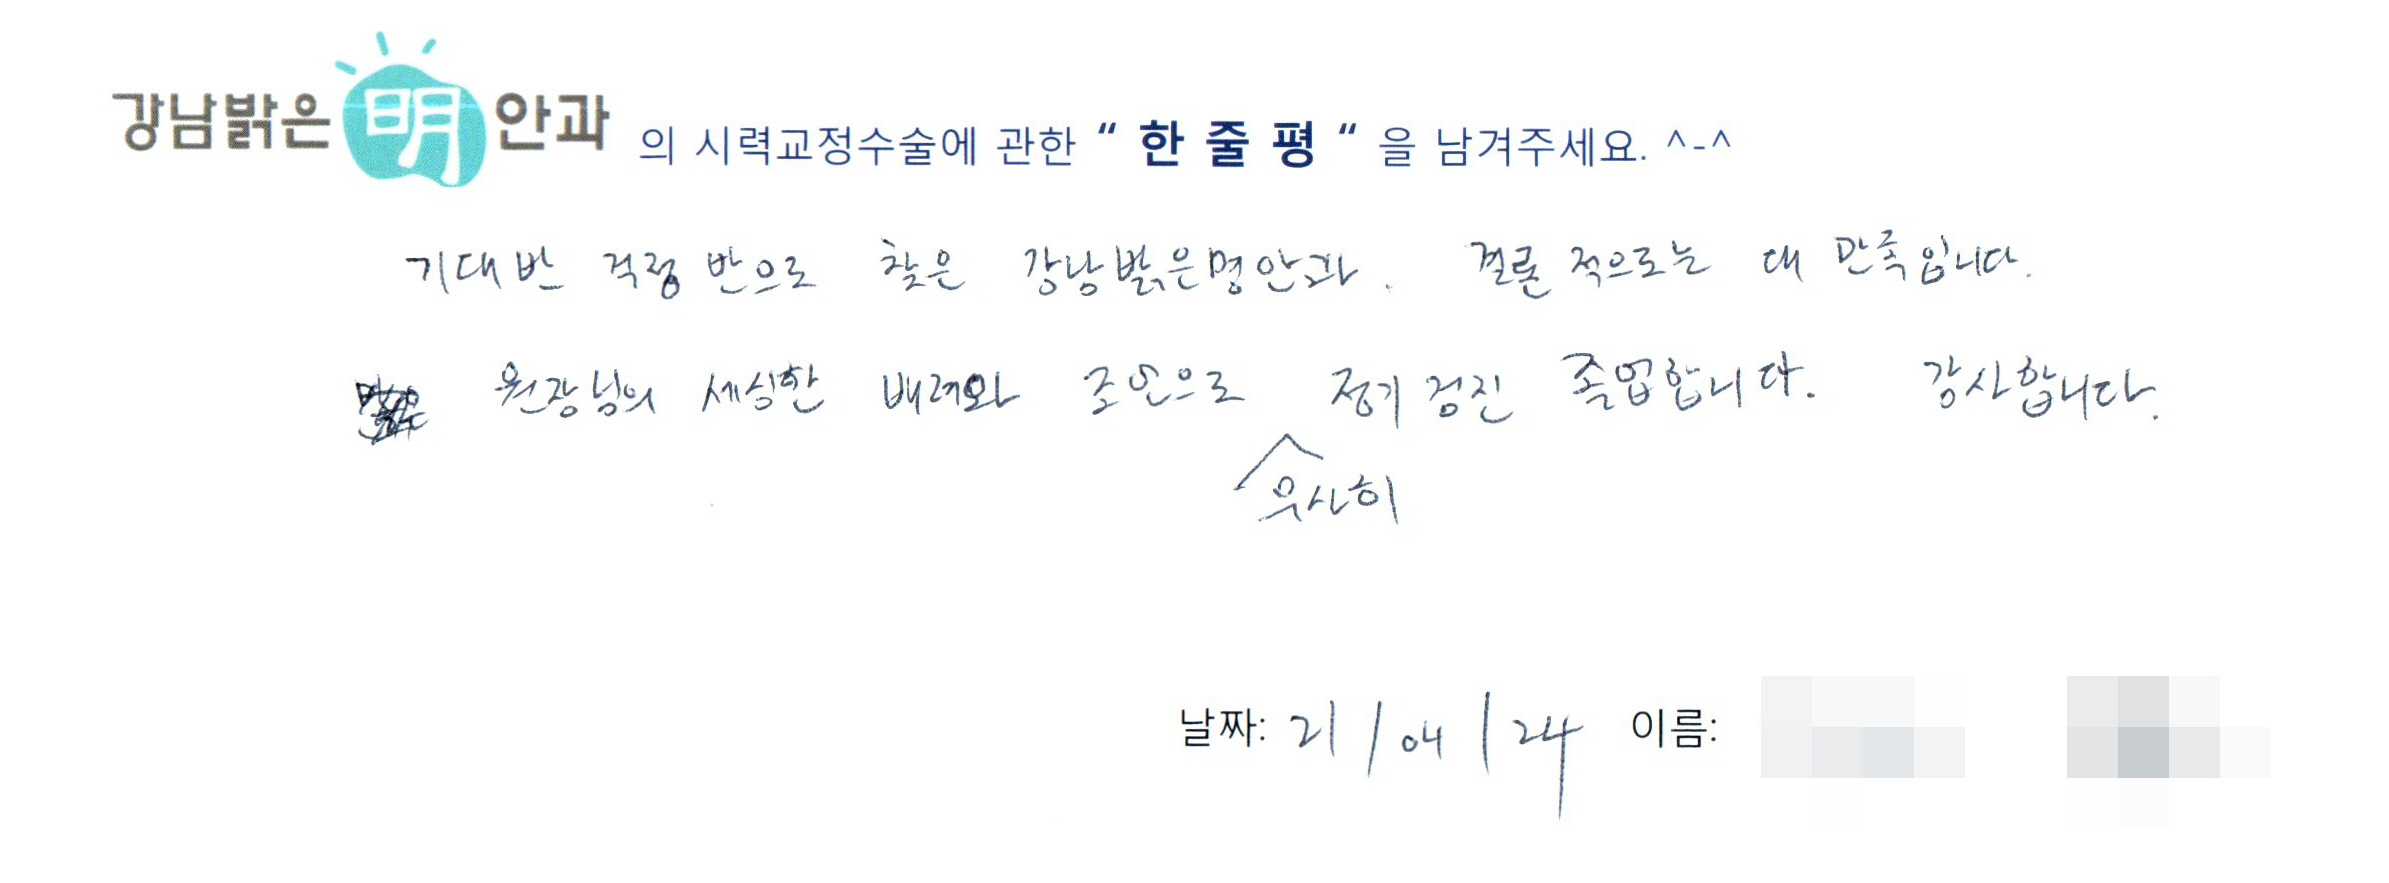 강남밝은明안과 의 시력교정수술에 관한 “ 한 줄 평 “ 을 남겨주세요. ^-^
기대반 걱정 반으로 찾은 강남밝은명안과. 결론적으로는 대 만족입니다.
원장님의 세심한 배려와 조언으로 정기 검진 졸업합니다. 감사합니다.
무사히
날짜: 21 / 04 / 24 이름: